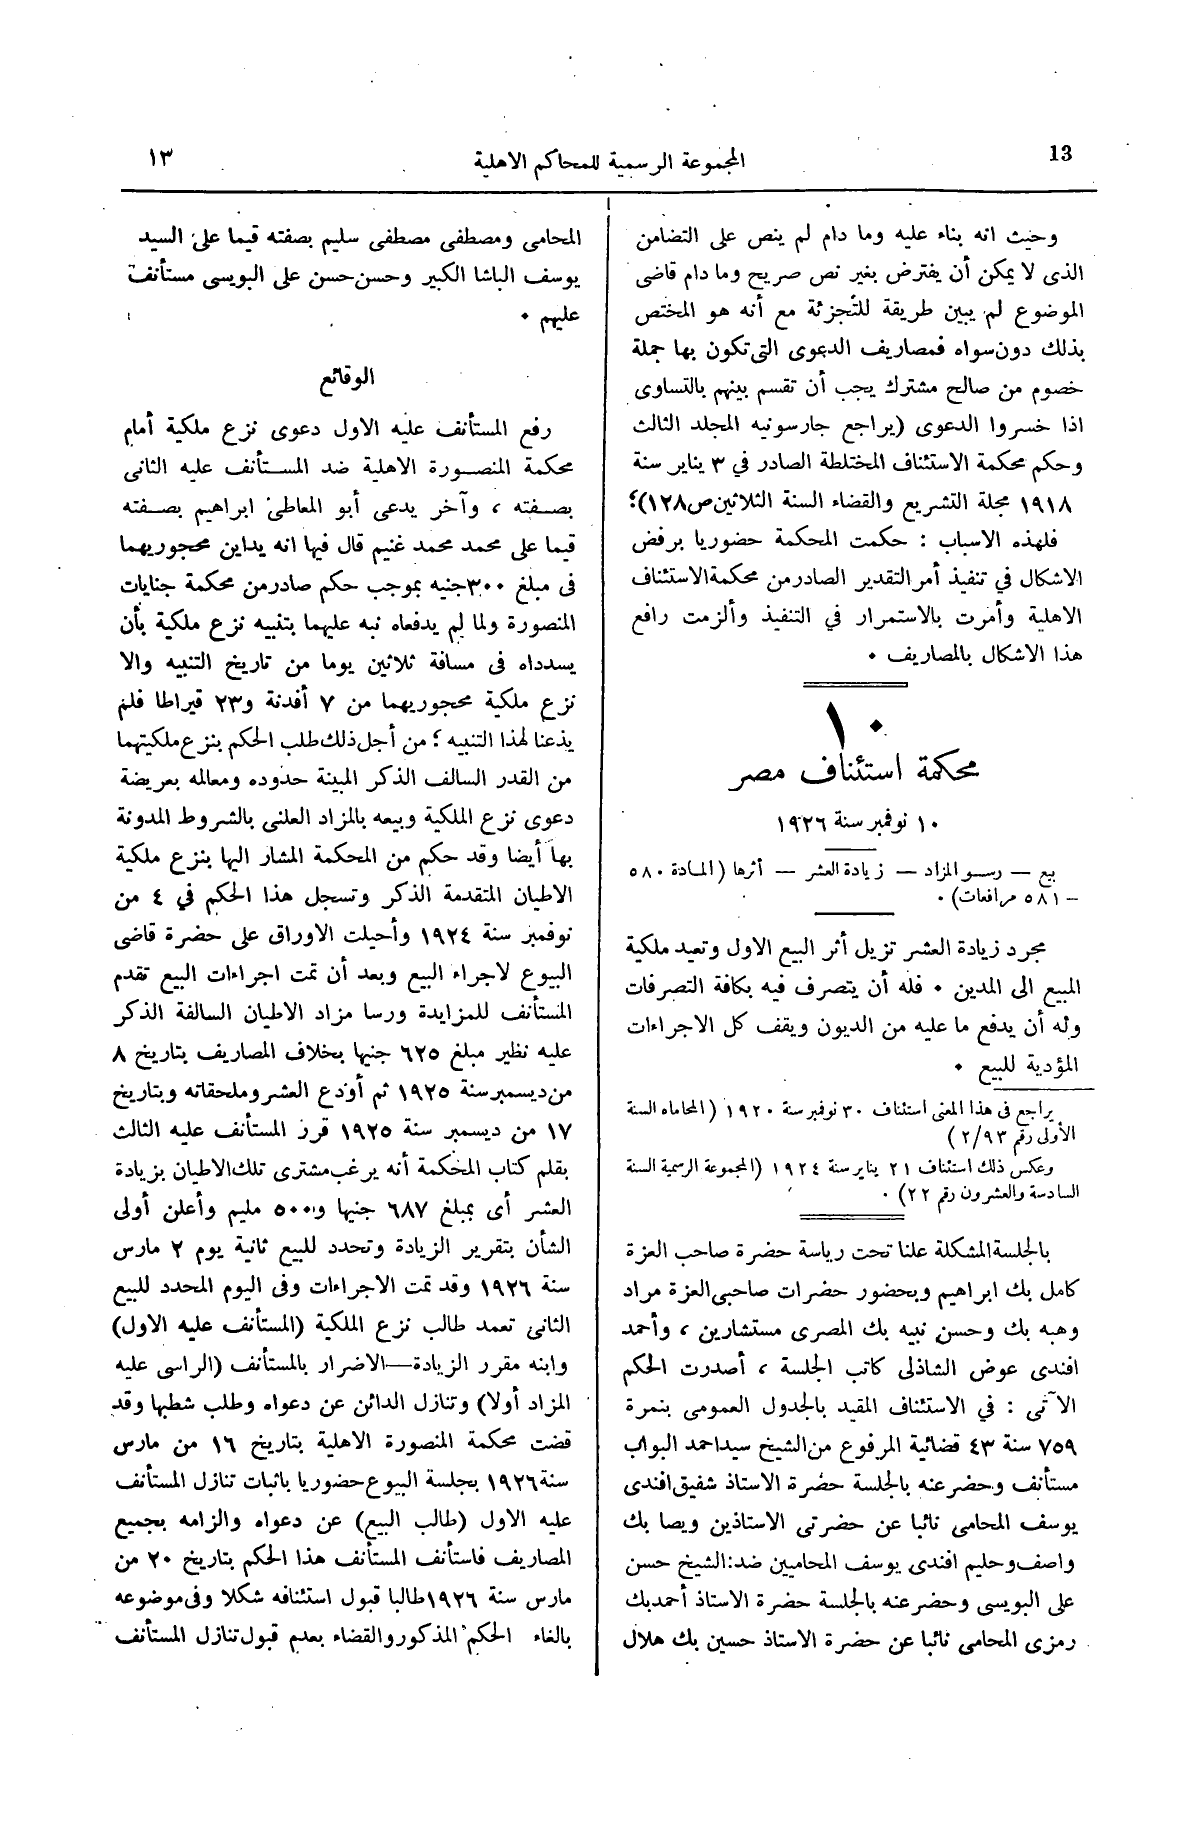 13
المجموعة الرسمية للمحاكم الاهلية
١٣
وحيث انه بناء عليه وما دام لم ينص على التضامن
الذى لا يمكن أن يفترض بغير نص صريح وما دام قاضى
الموضوع لم يبين طريقة للتجزئة مع أنه هو المختص
بذلك دون سواه فمصاريف الدعوى التى تكون بها جملة
خصوم من صالح مشترك يجب أن تقسم بينهم بالتساوى
اذا خسروا الدعوى (يراجع جارسونيه المجلد الثالث
وحكم محكمة الاستئناف المختلطة الصادر في ٣ يناير سنة
١٩١٨ مجلة التشريع والقضاء السنة الثلاثين ص ١٢٨)؛
فلهذه الاسباب : حكمت المحكمة حضوريا برفض
الاشكال في تنفيذ أمر التقدير الصادر من محكمة الاستئناف
الاهلية وأمرت بالاستمرار في التنفيذ وألزمت رافع
هذا الاشكال بالمصاريف .
١٠
محكمة استئناف مصر
١٠ نوفمبر سنة ١٩٢٦
بيع — رسو المزاد — زيادة العشر — أثرها (المادة ٥٨٠
– ٥٨١ مرافعات) .
مجرد زيادة العشر تزيل أثر البيع الاول وتعيد ملكية
المبيع الى المدين . فله أن يتصرف فيه بكافة التصرفات
وله أن يدفع ما عليه من الديون ويقف كل الاجراءات
المؤدية للبيع .
يراجع فى هذا المعنى استئناف ٣٠ نوفمبر سنة ١٩٢٠ (المحاماه السنة
الأولى رقم ٢/٩٣)
وعكس ذلك استئناف ٢١ يناير سنة ١٩٢٤ (المجموعة الرسمية السنة
السادسة والعشرون رقم ٢٢) .
بالجلسة المشكلة علنا تحت رياسة حضرة صاحب العزة
كامل بك ابراهيم وبحضور حضرات صاحبى العزة مراد
وهبه بك وحسن نبيه بك المصرى مستشارين ، وأحمد
افندى عوض الشاذلى كاتب الجلسة ، أصدرت الحكم
الآتى : في الاستئناف المقيد بالجدول العمومى بنمرة
٧٥٩ سنة ٤٣ قضائية المرفوع من الشيخ سيد احمد البواب
مستأنف وحضر عنه بالجلسة حضرة الاستاذ شفيق افندى
يوسف المحامى نائبا عن حضرتى الاستاذين ويصا بك
واصف وحليم افندى يوسف المحاميين ضد: الشيخ حسن
على البويسى وحضر عنه بالجلسة حضرة الاستاذ أحمد بك
رمزى المحامى نائبا عن حضرة الاستاذ حسين بك هلال
المحامى ومصطفى مصطفى سليم بصفته قيما على السيد
يوسف الباشا الكبير وحسن حسن على البويسى مستأنف
عليهم .
الوقائع
رفع المستأنف عليه الاول دعوى نزع ملكية أمام
محكمة المنصورة الاهلية ضد المستأنف عليه الثانى
بصفته ، وآخر يدعى أبو المعاطى ابراهيم بصفته
قيما على محمد محمد غنيم قال فيها انه يداين محجوريهما
فى مبلغ ٣٠٠ جنيه بموجب حكم صادر من محكمة جنايات
المنصورة ولما لم يدفعاه نبه عليهما بتنبيه نزع ملكية بأن
يسدداه فى مسافة ثلاثين يوما من تاريخ التنبيه والا
نزع ملكية محجوريهما من ٧ أفدنة و٢٣ قيراطا فلم
يذعنا لهذا التنبيه ؛ من أجل ذلك طلب الحكم بنزع ملكيتهما
من القدر السالف الذكر المبينة حدوده ومعالمه بعريضة
دعوى نزع الملكية وبيعه بالمزاد العلنى بالشروط المدونة
بها أيضا وقد حكم من المحكمة المشار اليها بنزع ملكية
الاطيان المتقدمة الذكر وتسجل هذا الحكم في ٤ من
نوفمبر سنة ١٩٢٤ وأحيلت الاوراق على حضرة قاضى
البيوع لاجراء البيع وبعد أن تمت اجراءات البيع تقدم
المستأنف للمزايدة ورسا مزاد الاطيان السالفة الذكر
عليه نظير مبلغ ٦٢٥ جنيها بخلاف المصاريف بتاريخ ٨
من ديسمبر سنة ١٩٢٥ ثم أودع العشر وملحقاته وبتاريخ
١٧ من ديسمبر سنة ١٩٢٥ قرر المستأنف عليه الثالث
بقلم كتاب المحكمة أنه يرغب مشترى تلك الاطيان بزيادة
العشر أى بمبلغ ٦٨٧ جنيها و٥٠٠ مليم وأعلن أولى
الشأن بتقرير الزيادة وتحدد للبيع ثانية يوم ٢ مارس
سنة ١٩٢٦ وقد تمت الاجراءات وفى اليوم المحدد للبيع
الثانى تعمد طالب نزع الملكية (المستأنف عليه الاول)
وابنه مقرر الزيادة—الاضرار بالمستأنف (الراسى عليه
المزاد أولا) وتنازل الدائن عن دعواه وطلب شطبها وقد
قضت محكمة المنصورة الاهلية بتاريخ ١٦ من مارس
سنة ١٩٢٦ بجلسة البيوع حضوريا باثبات تنازل المستأنف
عليه الاول (طالب البيع) عن دعواه والزامه بجميع
المصاريف فاستأنف المستأنف هذا الحكم بتاريخ ٢٠ من
مارس سنة ١٩٢٦ طالبا قبول استئنافه شكلا وفى موضوعه
بالغاء الحكم المذكور والقضاء بعدم قبول تنازل المستأنف